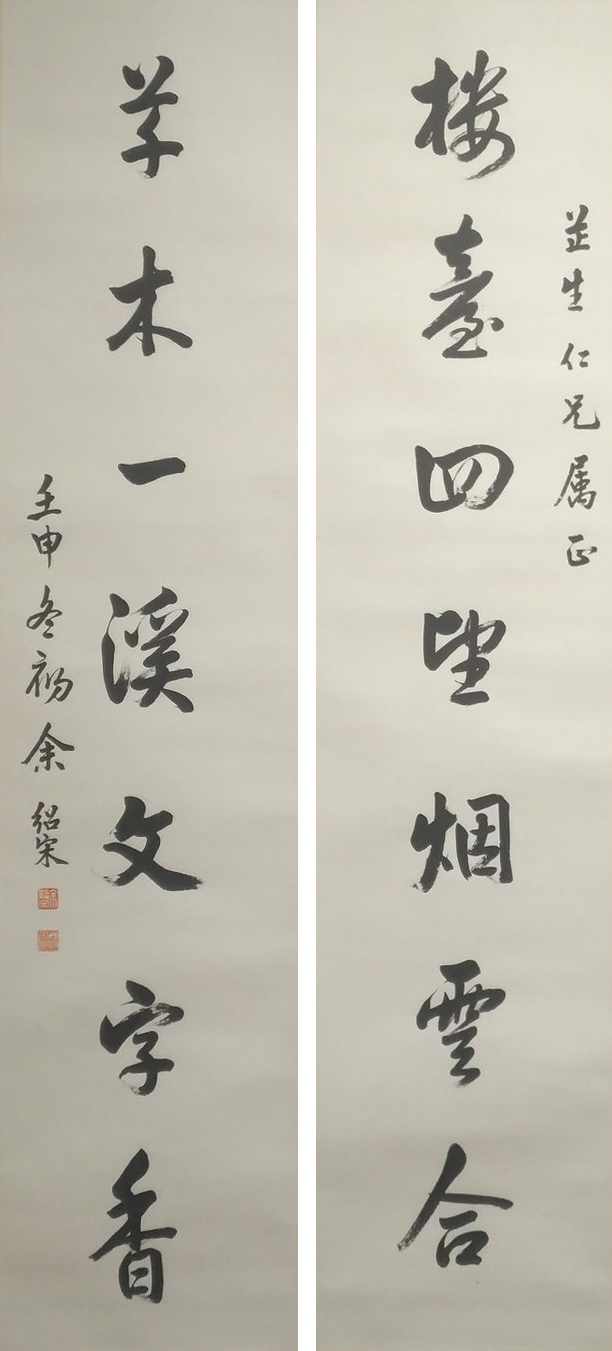 芷生仁兄属正
楼臺四望烟雲合
草木一溪文字香
壬申冬初余绍宋